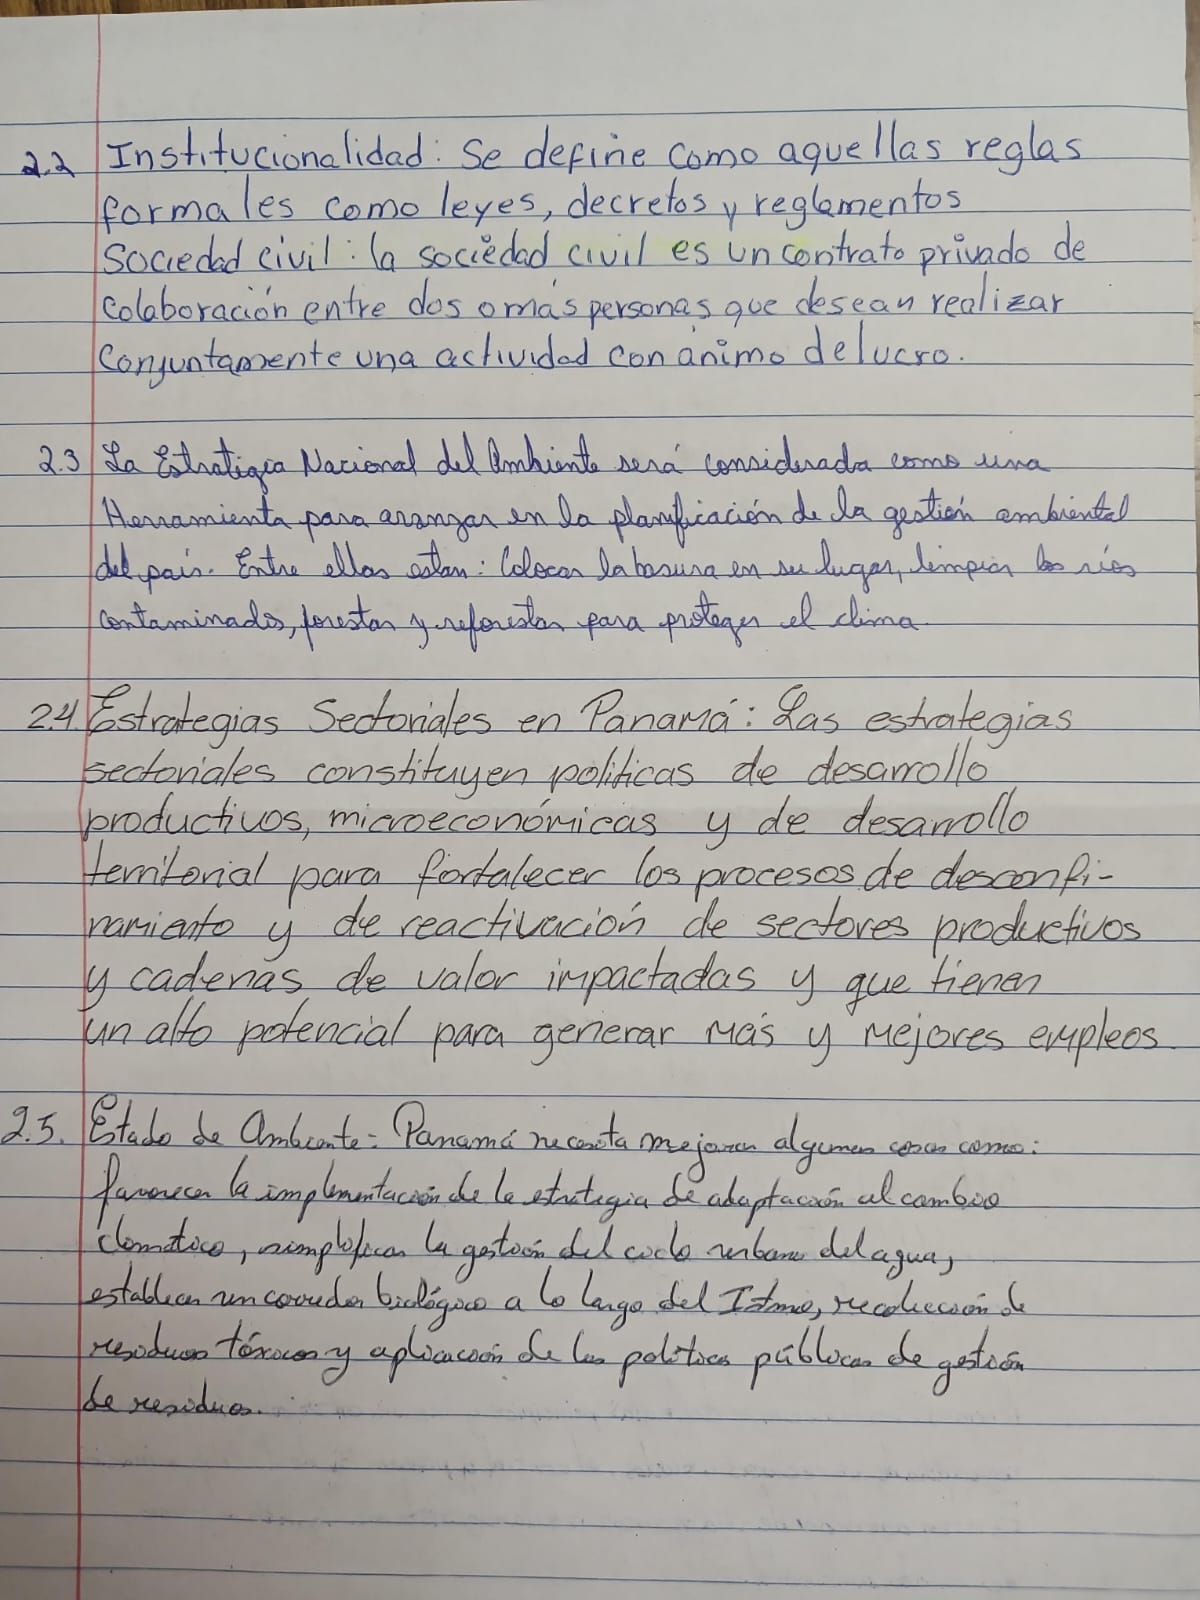 2.2 Institucionalidad: Se define como aquellas reglas
formales como leyes, decretos y reglamentos
Sociedad civil: la sociedad civil es un contrato privado de
colaboración entre dos o más personas que desean realizar
conjuntamente una actividad con ánimo de lucro.
2.3 La Estrategia Nacional del Ambiente será considerada como una
Herramienta para avanzar en la planificación de la gestión ambiental
del país. Entre ellas estan: Colocar la basura en su lugar, limpiar los ríos
contaminados, forestar y reforestar para proteger el clima.
2.4. Estrategias Sectoriales en Panamá: Las estrategias
sectoriales constituyen políticas de desarrollo
productivos, microeconómicas y de desarrollo
territorial para fortalecer los procesos de desconfi-
namiento y de reactivación de sectores productivos
y cadenas de valor impactadas y que tienen
un alto potencial para generar más y mejores empleos.
2.5. Estado de Ambiente: Panamá necesita mejorar algunas cosas como:
favorecer la implementación de la estrategia de adaptación al cambio
climático, simplificar la gestión del ciclo urbano del agua,
establecer un corredor biológico a lo largo del Istmo, recolección de
residuos tóxicos y aplicación de las políticas públicas de gestión
de residuos.